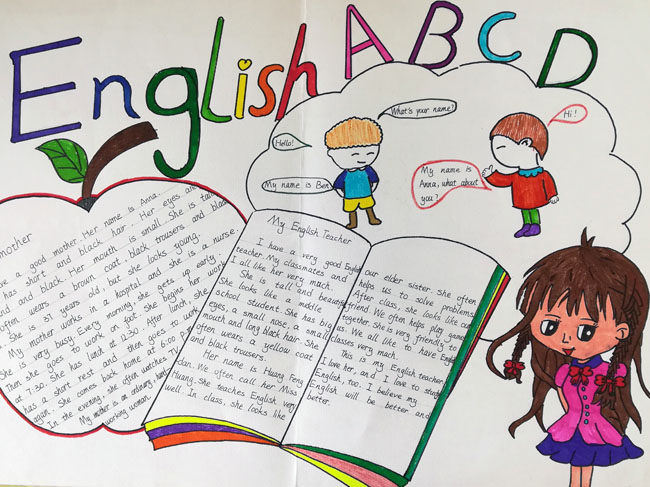 English ABCD
Hello!
What's your name?
My name is Ben.
Hi!
My name is
Anna, what about
you?
mother
have a good mother. Her name is Anna.
has short and black hair. Her eyes are
and black. Her mouth is small. She is tall
often wears a brown coat, black trousers and black
She is 37 years old but she looks young.
My mother works in a hospital and she is a nurse.
She is very busy. Every morning, she gets up early.
Then she goes to work on foot. She begins her work
at 7:30. She has lunch at 12:30. After lunch, she
has a short rest and then goes to work
again. She comes back home at 6:00 p.m.
In the evening, she often watches TV
My mother is an ordinary, hard
working woman.
My English Teacher
I have a very good English
teacher. My classmates and
I all like her very much.
She is tall and beautiful.
She looks like a middle
school student. She has big
eyes, a small nose, a small
mouth and long black hair. She
often wears a yellow coat
and black trousers.
Her name is Huang Feng
dan. We often call her Miss
Huang. She teaches English very
well. In class, she looks like
our elder sister. She often
helps us to solve problems.
After class, she looks like our
friend. We often play games
together. She is very friendly to
us. We all like to have English
classes very much.
This is my English teacher,
I love her, and I love to study
English, too. I believe my
English will be better and
better.